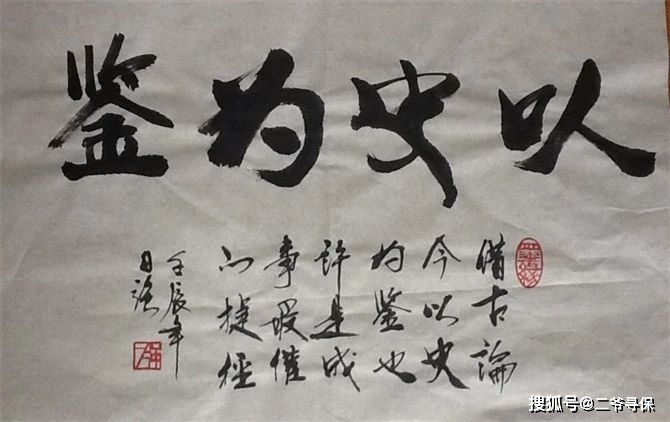 以史为鉴
借古論
今以史
为鉴也
許是成
事最催
心捷径
壬辰年
日强
搜狐号@二爷寻保